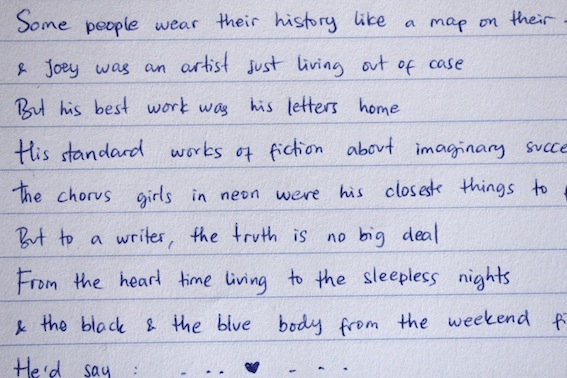 Some people wear their history like a map on their
& Joey was an artist just living out of case
But his best work was his letters home
His standard works of fiction about imaginary succe
The chorus girls in neon were his closest things to
But to a writer, the truth is no big deal
From the heart time living to the sleepless nights
& the black & the blue body from the weekend fi
He'd say : - . . ♥ - . . .